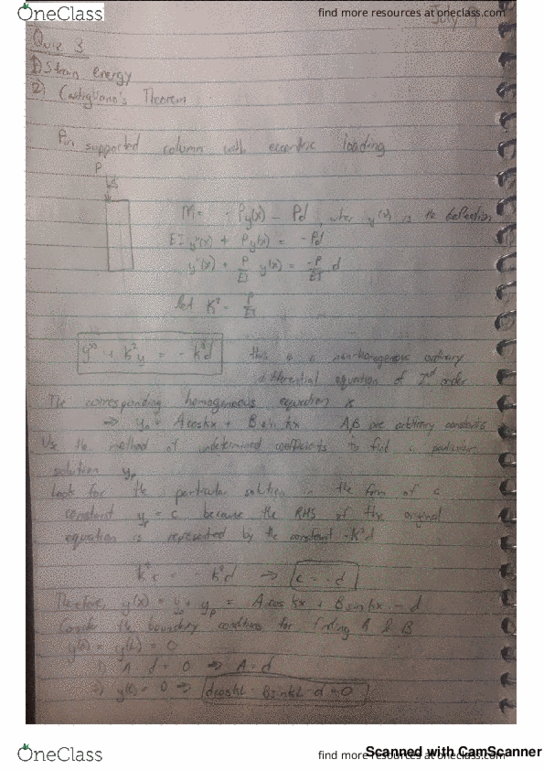 OneClass
find more resources at oneclass.com
July
Quiz 3
1) Strain energy
2) Castigliano's Theorem
Pin supported column with eccentric loading
P
M = - Py(x) - Pd, where y(x) is the deflection
EI y''(x) + Py(x) = -Pd
y''(x) + P/EI y(x) = -P/EI d
let K² = P/EI
y'' + k²y = - k²d this is a non-homogenous ordinary
differential equation of 2nd order
The corresponding homogeneous equation is
⇒ yh = A cos kx + B sin kx A,B are arbitrary constants
Use the method of undetermined coefficients to find a particular
solution yp
Look for the particular solution in the form of a
constant yp = c because the RHS of the original
equation is represented by the constant -k²d
k²c = - k²d ⇒ c = -d
Therefore, y(x) = yh + yp = A cos kx + B sin kx - d
Consider the boundary conditions for finding A & B
y(0) = y(L) = 0
1) A - d = 0 ⇒ A = d
2) y(L) = 0 ⇒ dcoskL + BsinkL - d = 0
OneClass
find more resources at oneclass.com
Scanned with CamScanner